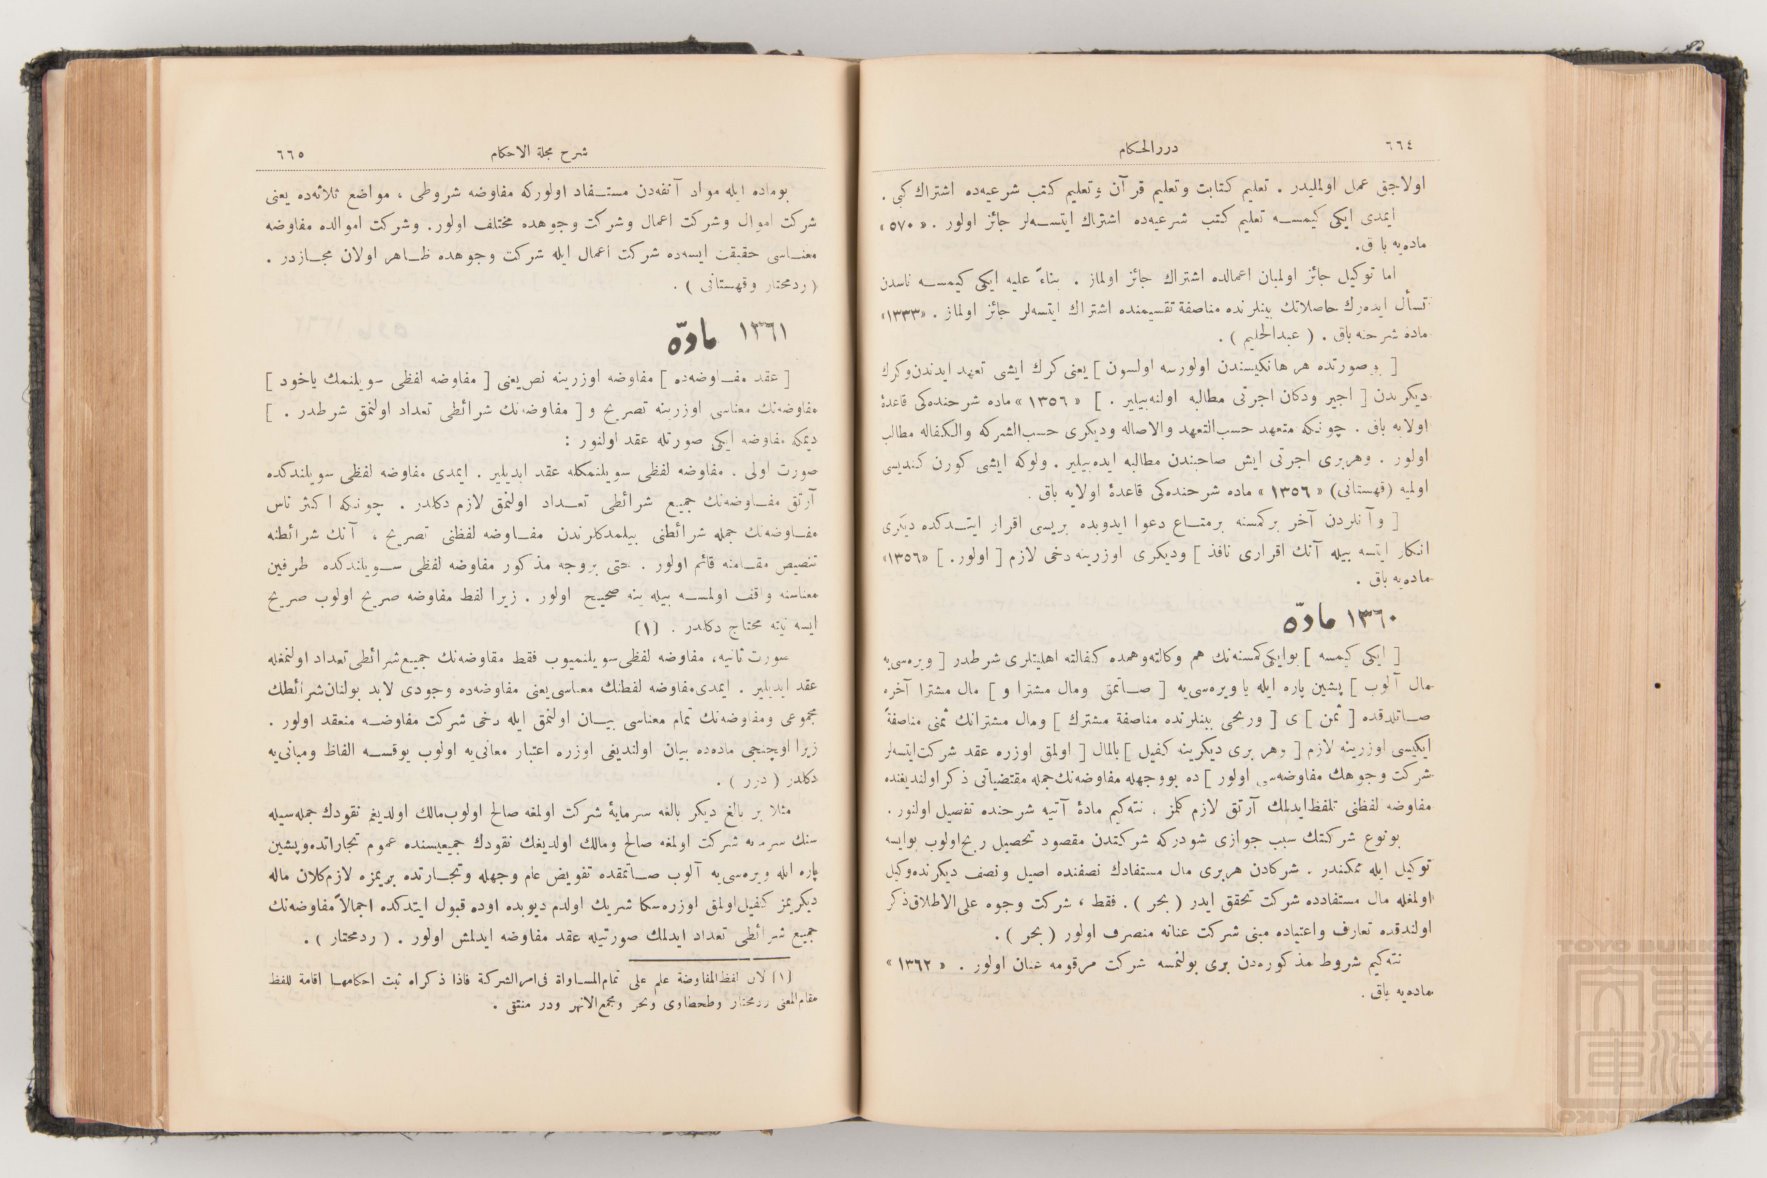 ٦٦٤
دررالحكام
اولاجق عمل اولمليدر . تعليم كتابت وتعليم قرآن وتعليم كتب شرعيه‌ده اشتراك كبی .
ايمدی ايكی كيمسه تعليم كتب شرعيه‌ده اشتراك ايتسه‌لر جائز اولور . « ٥٧٠ »
ماده‌يه باق.
اما توكيل جائز اولميان اعمالده اشتراك جائز اولماز . بناءً عليه ايكی كيمسه ناسدن
تسأل ايده‌رك حاصلاتك بينلرنده مناصفة تقسيمنده اشتراك ايتسه‌لر جائز اولماز . «١٣٣٣»
ماده شرحنه باق . ( عبدالحليم ) .
[ بو صورتده هر هانكيسندن اولورسه اولسون ] يعنی كرك ايشی تعهد ايدندن وكرك
ديكرندن [ اجير ودكان اجرتی مطالبه اولنه‌بيلير . ] « ١٣٥٦ » ماده شرحنده‌كی قاعدۀ
اولايه باق . چونكه متعهد حسب‌التعهد والاصاله وديكری حسب‌الشركه والكفاله مطالب
اولور . وهربری اجرتی ايش صاحبندن مطالبه ايده‌بيلير . ولوكه ايشی كورن كنديسی
اولميه (قهستانی) « ١٣٥٦ » ماده شرحنده‌كی قاعدۀ اولايه باق .
[ وآنلردن آخر بركمسنه برمتاع دعوا ايدوبده بريسی اقرار ايتدكده ديكری
انكار ايتسه بيله آنك اقراری نافذ ] وديكری اوزرينه دخی لازم [ اولور. ] «١٣٥٦»
ماده‌يه باق .
١٣٦٠ مادّه
[ ايكی كيمسه ] بوايكی كمسنه‌نك هم وكالته وهمده كفالته اهليتلری شرطدر [ ويره‌سی‌يه
مال آلوب ] پشين پاره ايله يا ويره‌سی‌يه [ صاتمق ومال مشترا و ] مال مشترا آخره
صاتلدقده [ ثمن ] ی [ وربحی بينلرنده مناصفة مشترك ] ومال مشترانك ثمنی مناصفةً
ايكيسی اوزرينه لازم [ وهر بری ديكرينه كفيل ] بالمال [ اولمق اوزره عقد شركت ايتسه‌لر
شركت وجوهك مفاوضه‌سی اولور ] ده بووجهله مفاوضه‌نك جمله مقتضياتی ذكر اولنديغنده
مفاوضه لفظنی تلفظ ايدلمك آرتق لازم كلمز . نته‌كيم مادۀ آتيه شرحنده تفصيل اولنور.
بونوع شركتك سبب جوازی شودركه شركتدن مقصود تحصيل ربح اولوب بوايسه
توكيل ايله ممكندر . شركادن هربری مال مستفادك نصفنده اصيل ونصف ديكرنده وكيل
اولمغله مال مستفادده شركت تحقق ايدر ( بحر ) . فقط ، شركت وجوه علی‌الاطلاق ذكر
اولندقده تعارف واعتياده مبنی شركت عنانه منصرف اولور ( بحر ) .
نته‌كيم شروط مذكوره‌دن بری بولنمسه شركت مرقومه عنان اولور . « ١٣٦٢ »
ماده‌يه باق .
شرح مجلة الاحكام
٦٦٥
بوماده ايله مواد آنفه‌دن مستفاد اولوركه مفاوضه شروطی ، مواضع ثلاثه‌ده يعنی
شركت اموال وشركت اعمال وشركت وجوهده مختلف اولور. وشركت اموالده مفاوضه
معناسی حقيقت ايسه‌ده شركت اعمال ايله شركت وجوهده ظاهر اولان مجازدر .
( ردمحتار وقهستانی ) .
١٣٦١ مادّه
[ عقد مفاوضه‌ده ] مفاوضه اوزرينه نص يعنی [ مفاوضه لفظی سويلنمك ياخود ]
مفاوضه‌نك معناسی اوزرينه تصريح و [ مفاوضه‌نك شرائطی تعداد اولنمق شرطدر . ]
ديمكه مفاوضه ايكی صورتله عقد اولنور :
صورت اولی . مفاوضه لفظی سويلنمكله عقد ايديلير . ايمدی مفاوضه لفظی سويلندكده
آرتق مفاوضه‌نك جميع شرائطی تعداد اولنمق لازم دكلدر . چونكه اكثر ناس
مفاوضه‌نك جمله شرائطنی بيلمدكلرندن مفاوضه لفظنی تصريح ، آنك شرائطنه
تنصيص مقامنه قائم اولور . حتی بروجه مذكور مفاوضه لفظی سويلندكده طرفين
معناسنه واقف اولمسه بيله ينه صحيح اولور . زيرا لفظ مفاوضه صريح اولوب صريح
ايسه نيته محتاج دكلدر . (١)
صورت ثانيه، مفاوضه لفظی سويلنميوب فقط مفاوضه‌نك جميع شرائطی تعداد اولنمغله
عقد ايديلير . ايمدی مفاوضه لفظنك معناسی يعنی مفاوضه‌ده وجودی لابد بولنان شرائطك
مجموعی ومفاوضه‌نك تمام معناسی بيان اولنمق ايله دخی شركت مفاوضه منعقد اولور .
زيرا اوچنجی ماده‌ده بيان اولنديغی اوزره اعتبار معانی‌يه اولوب يوقسه الفاظ ومبانی‌يه
دكلدر ( درر ) .
مثلا بر بالغ ديكر بالغه سرمايۀ شركت اولمغه صالح اولوب مالك اولديغم نقودك جمله‌سيله
سنك سرمايه شركت اولمغه صالح ومالك اولديغك نقودك جميعيسنده عموم تجاراتده وپشين
پاره ايله ويره‌سی‌يه آلوب صاتمقده تفويض عام وجهله وتجارتده بريمزه لازم كلان ماله
ديكريمز كفيل اولمق اوزره سكا شريك اولدم ديوبده اوده قبول ايتدكده اجمالاً مفاوضه‌نك
جميع شرائطی تعداد ايدلمك صورتيله عقد مفاوضه ايدلمش اولور . ( ردمحتار ) .
(١) لان لفظ المفاوضة علم علی تمام المساواة فی امر الشركة فاذا ذكراه تثبت احكامها اقامة للفظ
مقام المعنی ردمحتار وطحطاوی وبحر ومجمع‌الانهر ودر منتقی .
TOYO BUNKO